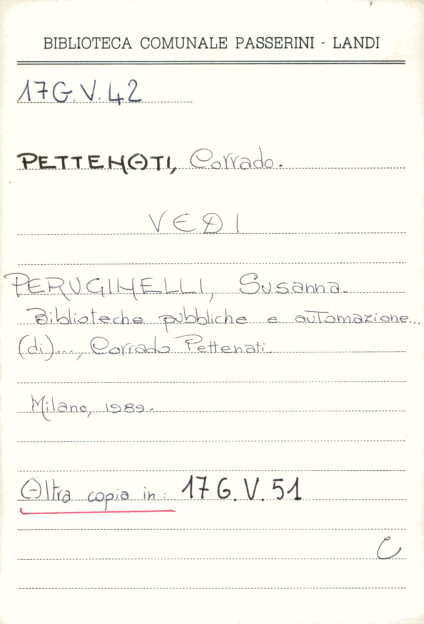 BIBLIOTECA COMUNALE PASSERINI - LANDI
17G.V.42
PETTENATI, Corrado.
VEDI
PERUGINELLI, Susanna.
Biblioteche pubbliche e automazione...
(di)..., Corrado Pettenati.
Milano, 1989.
Altra copia in: 17G.V.51
C